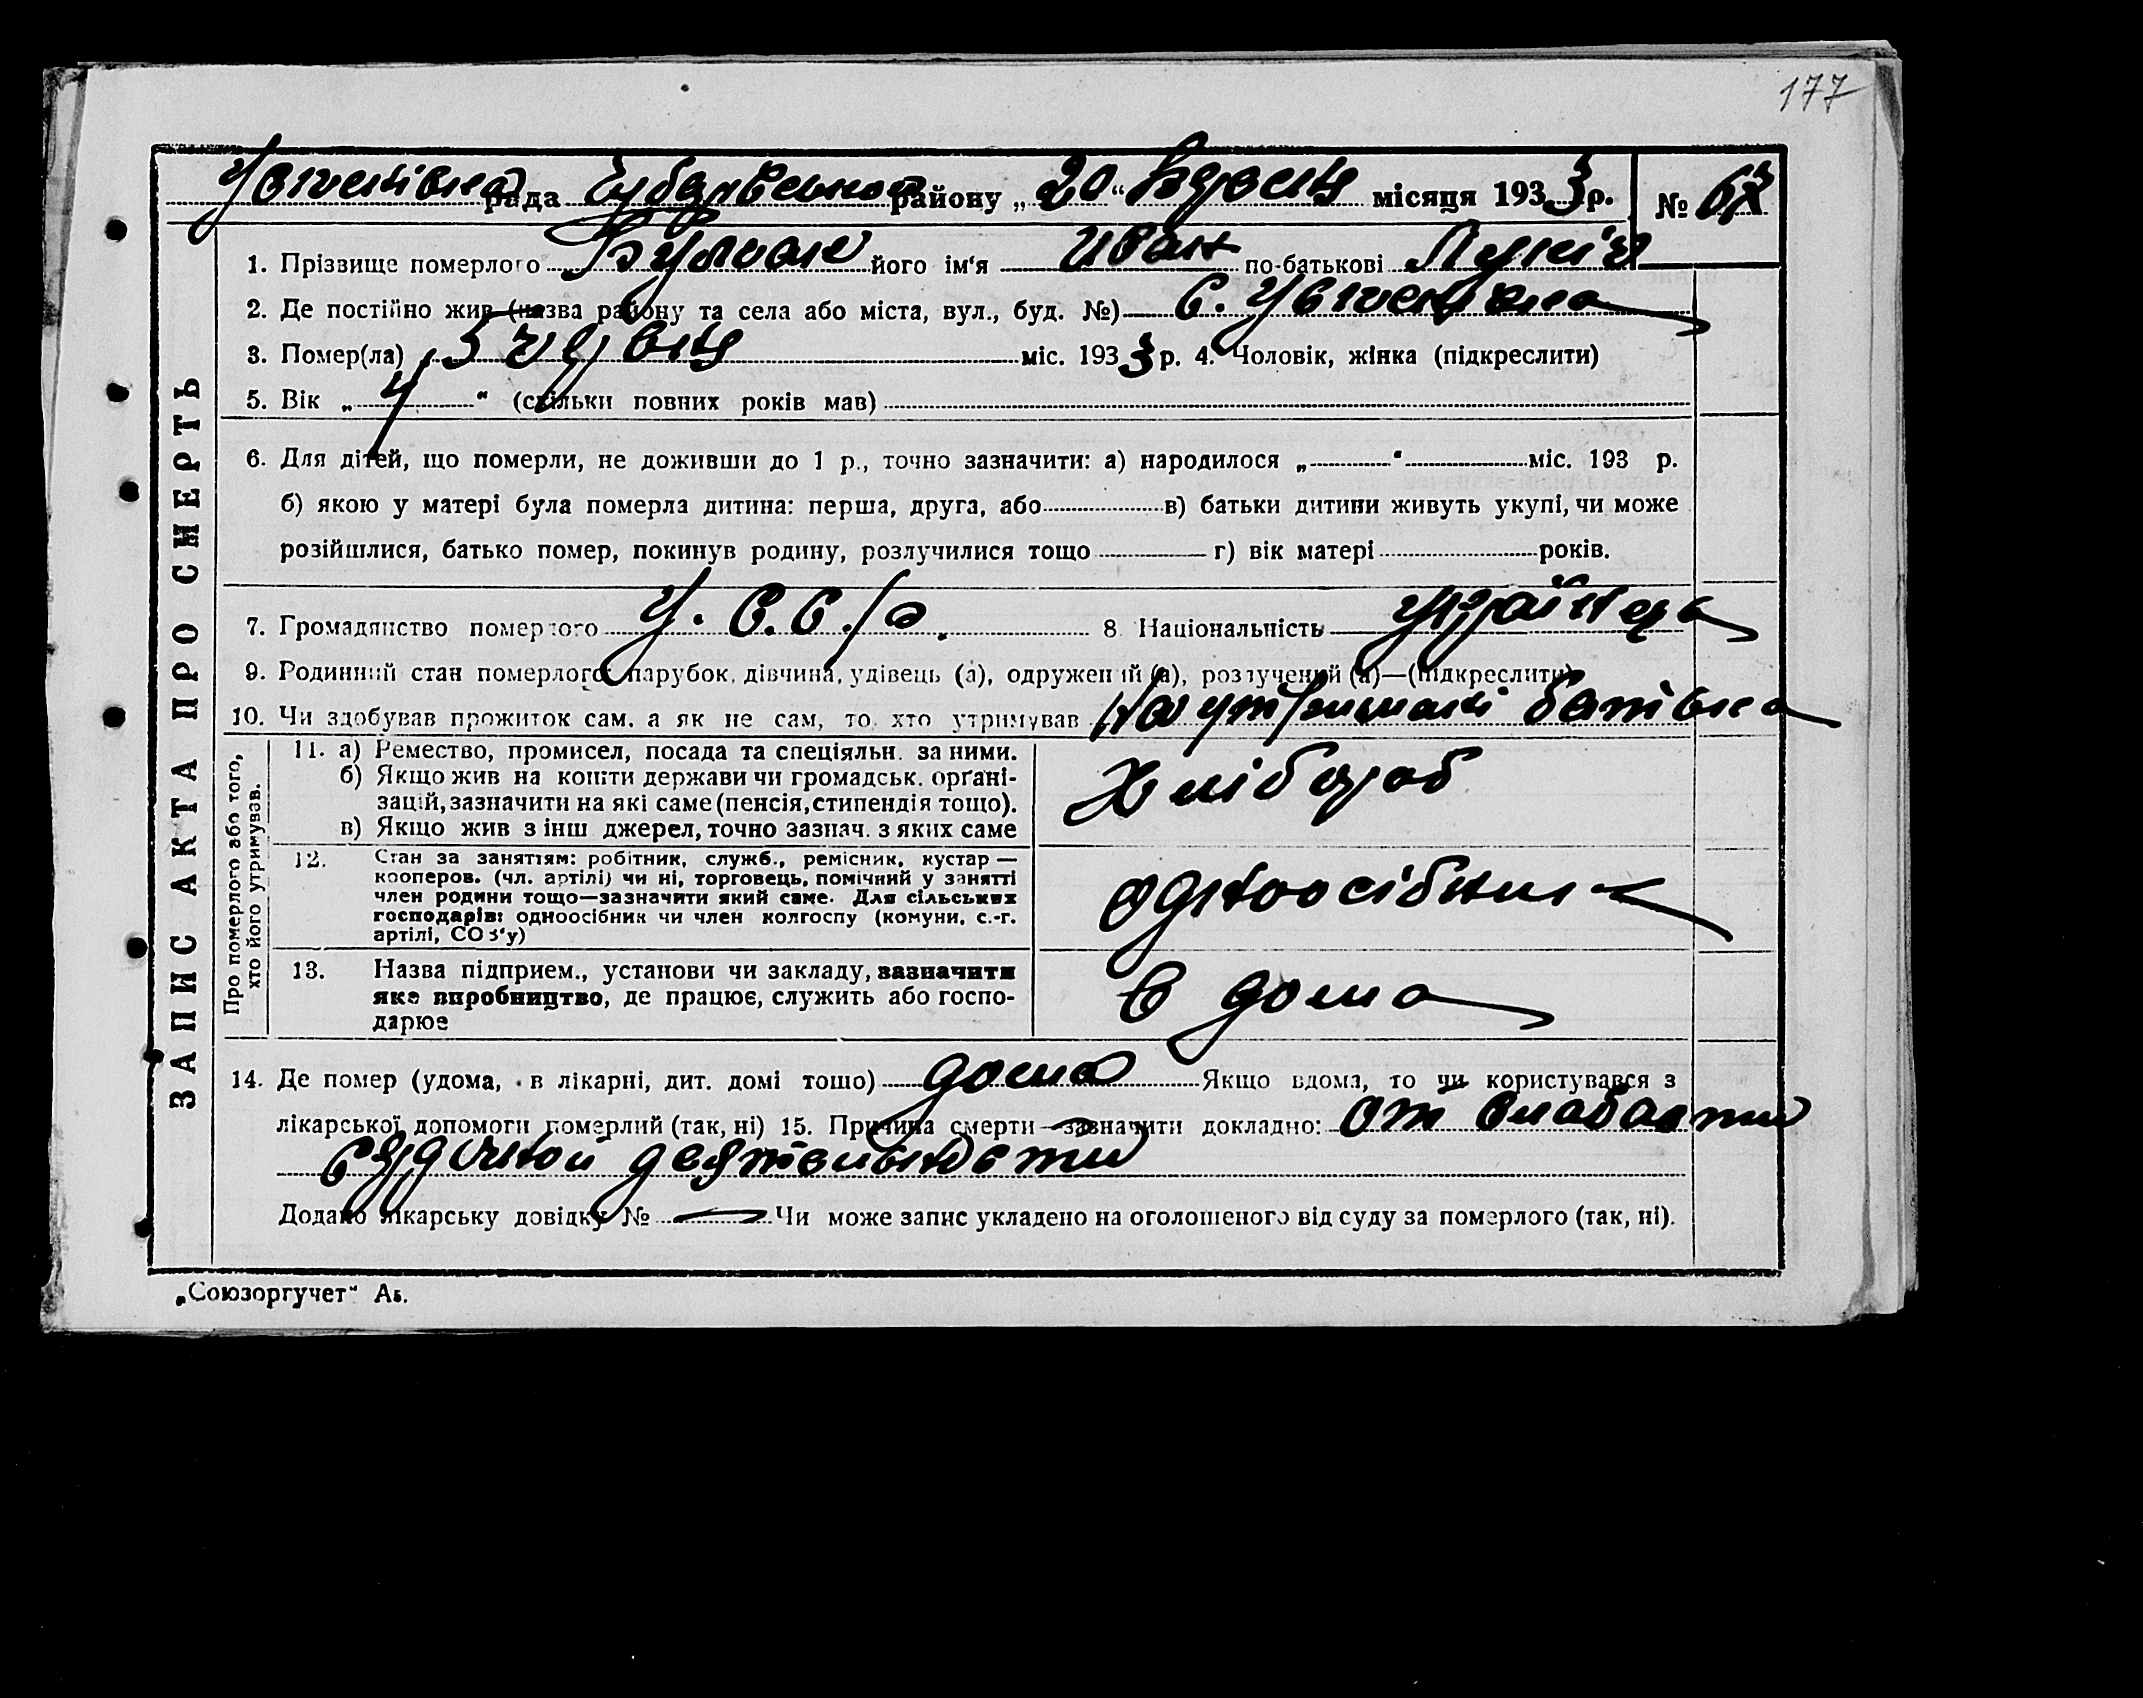 177
рада района „20“ місяця 1933 р. № 63
1. Прізвище померлого його ім'я Иван по-батькові
2. Де постійно жив (назва району та села або міста, вул., буд. №) с.
3. Помер(ла) 5 міс. 1933 р. 4. Чоловік, жінка (підкреслити)
5. Вік „4“ (скільки повних років мав)
6. Для дітей, що померли, не доживши до 1 р., точно зазначити: а) народилося „ “ міс. 193 р.
б) якою у матері була померла дитина: перша, друга, або в) батьки дитини живуть укупі, чи може
розійшлися, батько помер, покинув родину, розлучилися тощо г) вік матері років.
7. Громадянство померлого У.С.С.Р. 8 Національність
9. Родинний стан померлого: парубок, дівчина, удівець (а), одружений (а), розлучений (а)—(підкреслити)
10. Чи здобував прожиток сам, а як не сам, то хто утримував На утриманні батька
ЗАПИС АКТА ПРО СМЕРТЬ
Про померлого або того,
хто його утримував.
11. а) Ремество, промисел, посада та спеціяльн. за ними.
б) Якщо жив на кошти держави чи громадськ. органі-
зацій, зазначити на які саме (пенсія, стипендія тощо).
в) Якщо жив з інш джерел, точно зазнач. з яких саме
Хлібороб
12. Стан за заняттям: робітник, служб., ремісник, кустар —
кооперов. (чл. артілі) чи ні, торговець, помічний у занятті
член родини тощо—зазначити який саме. Для сільських
господарів: одноосібник чи член колгоспу (комуни, с.-г.
артілі, СОЗ'у)
одноосібник
13. Назва підприєм., установи чи закладу, зазначити
яке виробництво, де працює, служить або госпо-
дарює
в дома
14. Де помер (удома, в лікарні, дит. домі тощо) дома Якщо вдома, то чи користувався з
лікарської допомоги померлий (так, ні) 15. Причина смерти—зазначити докладно: от слабости
сердечной деятельности
Додано лікарську довідку № — Чи може запис укладено на оголошеного від суду за померлого (так, ні).
„Союзоргучет“ Аб.